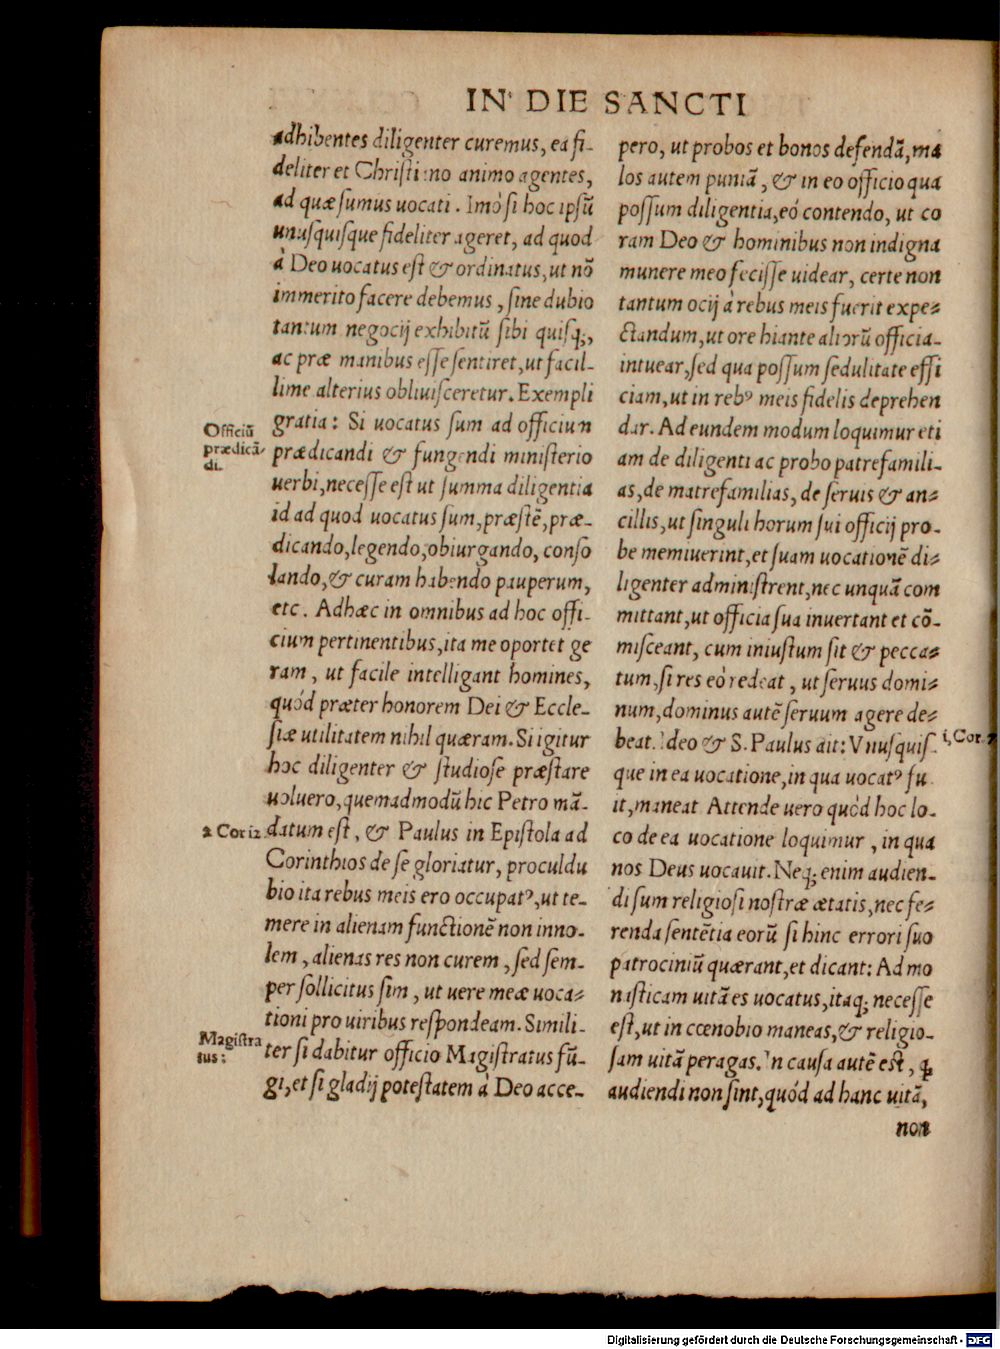 IN DIE SANCTI
adhibentes diligenter curemus, ea fi-
deliter et Christiano animo agentes,
ad quæ sumus uocati. Imò si hoc ipsū
unusquisque fideliter ageret, ad quod
à Deo uocatus est & ordinatus, ut nō
immerito facere debemus, sine dubio
tantum negocij exhibitū sibi quisq;,
ac præ manibus esse sentiret, ut facil-
lime alterius obliuisceretur. Exempli
gratia: Si uocatus sum ad officiun
prædicandi & fungendi ministerio
uerbi, necesse est ut summa diligentia
id ad quod uocatus sum, præstē, præ-
dicando, legendo, obiurgando, conso
lando, & curam habendo pauperum,
etc. Adhæc in omnibus ad hoc offi-
cium pertinentibus, ita me oportet ge
ram, ut facile intelligant homines,
quód præter honorem Dei & Eccle-
siæ utilitatem nihil quæram. Si igitur
hoc diligenter & studiose præstare
uoluero, quemadmodū hic Petro mā-
datum est, & Paulus in Epistola ad
Corinthios de se gloriatur, proculdu
bio ita rebus meis ero occupatꝰ, ut te-
mere in alienam functionē non inno-
lem, alienas res non curem, sed sem-
per sollicitus sim, ut uere meæ uoca-
tioni pro uiribus respondeam. Simili-
ter si dabitur officio Magistratus fū-
gi, et si gladij potestatem à Deo acce-
Officiū
prædicā-
di.
2 Cor 12
Magistra
tus:
pero, ut probos et bonos defendā, ma
los autem puniā, & in eo officio qua
possum diligentia, eò contendo, ut co
ram Deo & hominibus non indigna
munere meo fecisse uidear, certe non
tantum ocij à rebus meis fuerit expe-
ctandum, ut ore hiante aliorū officia-
intuear, sed qua possum sedulitate effi
ciam, ut in rebꝰ meis fidelis deprehen
dar. Ad eundem modum loquimur eti
am de diligenti ac probo patrefamili-
as, de matrefamilias, de seruis & an-
cillis, ut singuli horum sui officij pro-
be memiuerint, et suam uocationē di-
ligenter administrent, nec unquā com
mittant, ut officia sua inuertant et cō-
misceant, cum iniustum sit & pecca-
tum, si res eò redeat, ut seruus domi-
num, dominus autē seruum agere de-
beat. Ideo & S. Paulus ait: Vnusquis-
que in ea uocatione, in qua uocatꝰ fu
it, maneat Attende uero quòd hoc lo-
co de ea uocatione loquimur, in qua
nos Deus uocauit. Neq; enim audien-
di sum religiosi nostræ ætatis, nec fe-
renda sentētia eorū si hinc errori suo
patrociniū quærant, et dicant: Ad mo
nasticam uitā es uocatus, itaq; necesse
est, ut in cœnobio maneas, & religio-
sam uitā peragas. In causa autē est, ꝗ
audiendi non sint, quód ad hanc uitā,
1, Cor. 7
non
Digitalisierung gefördert durch die Deutsche Forschungsgemeinschaft - DFG